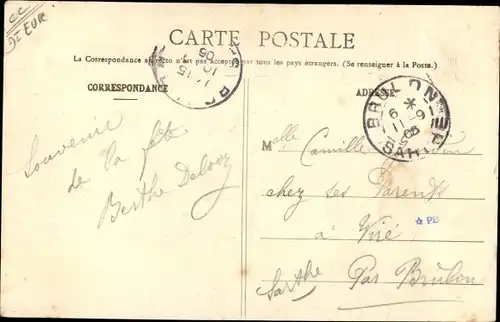 CC
35 EUR
CARTE POSTALE
La Correspondance au recto n'est pas acceptée par tous les pays étrangers. (Se renseigner à la Poste.)
CORRESPONDANCE
ADRESSE
BRULON
6 *
11 - 9
05
SARTHE
Souvenir
de la fête
Berthe
Mlle Camille
chez ses Parents
à Viré
& PB
Sarthe Par Brûlon